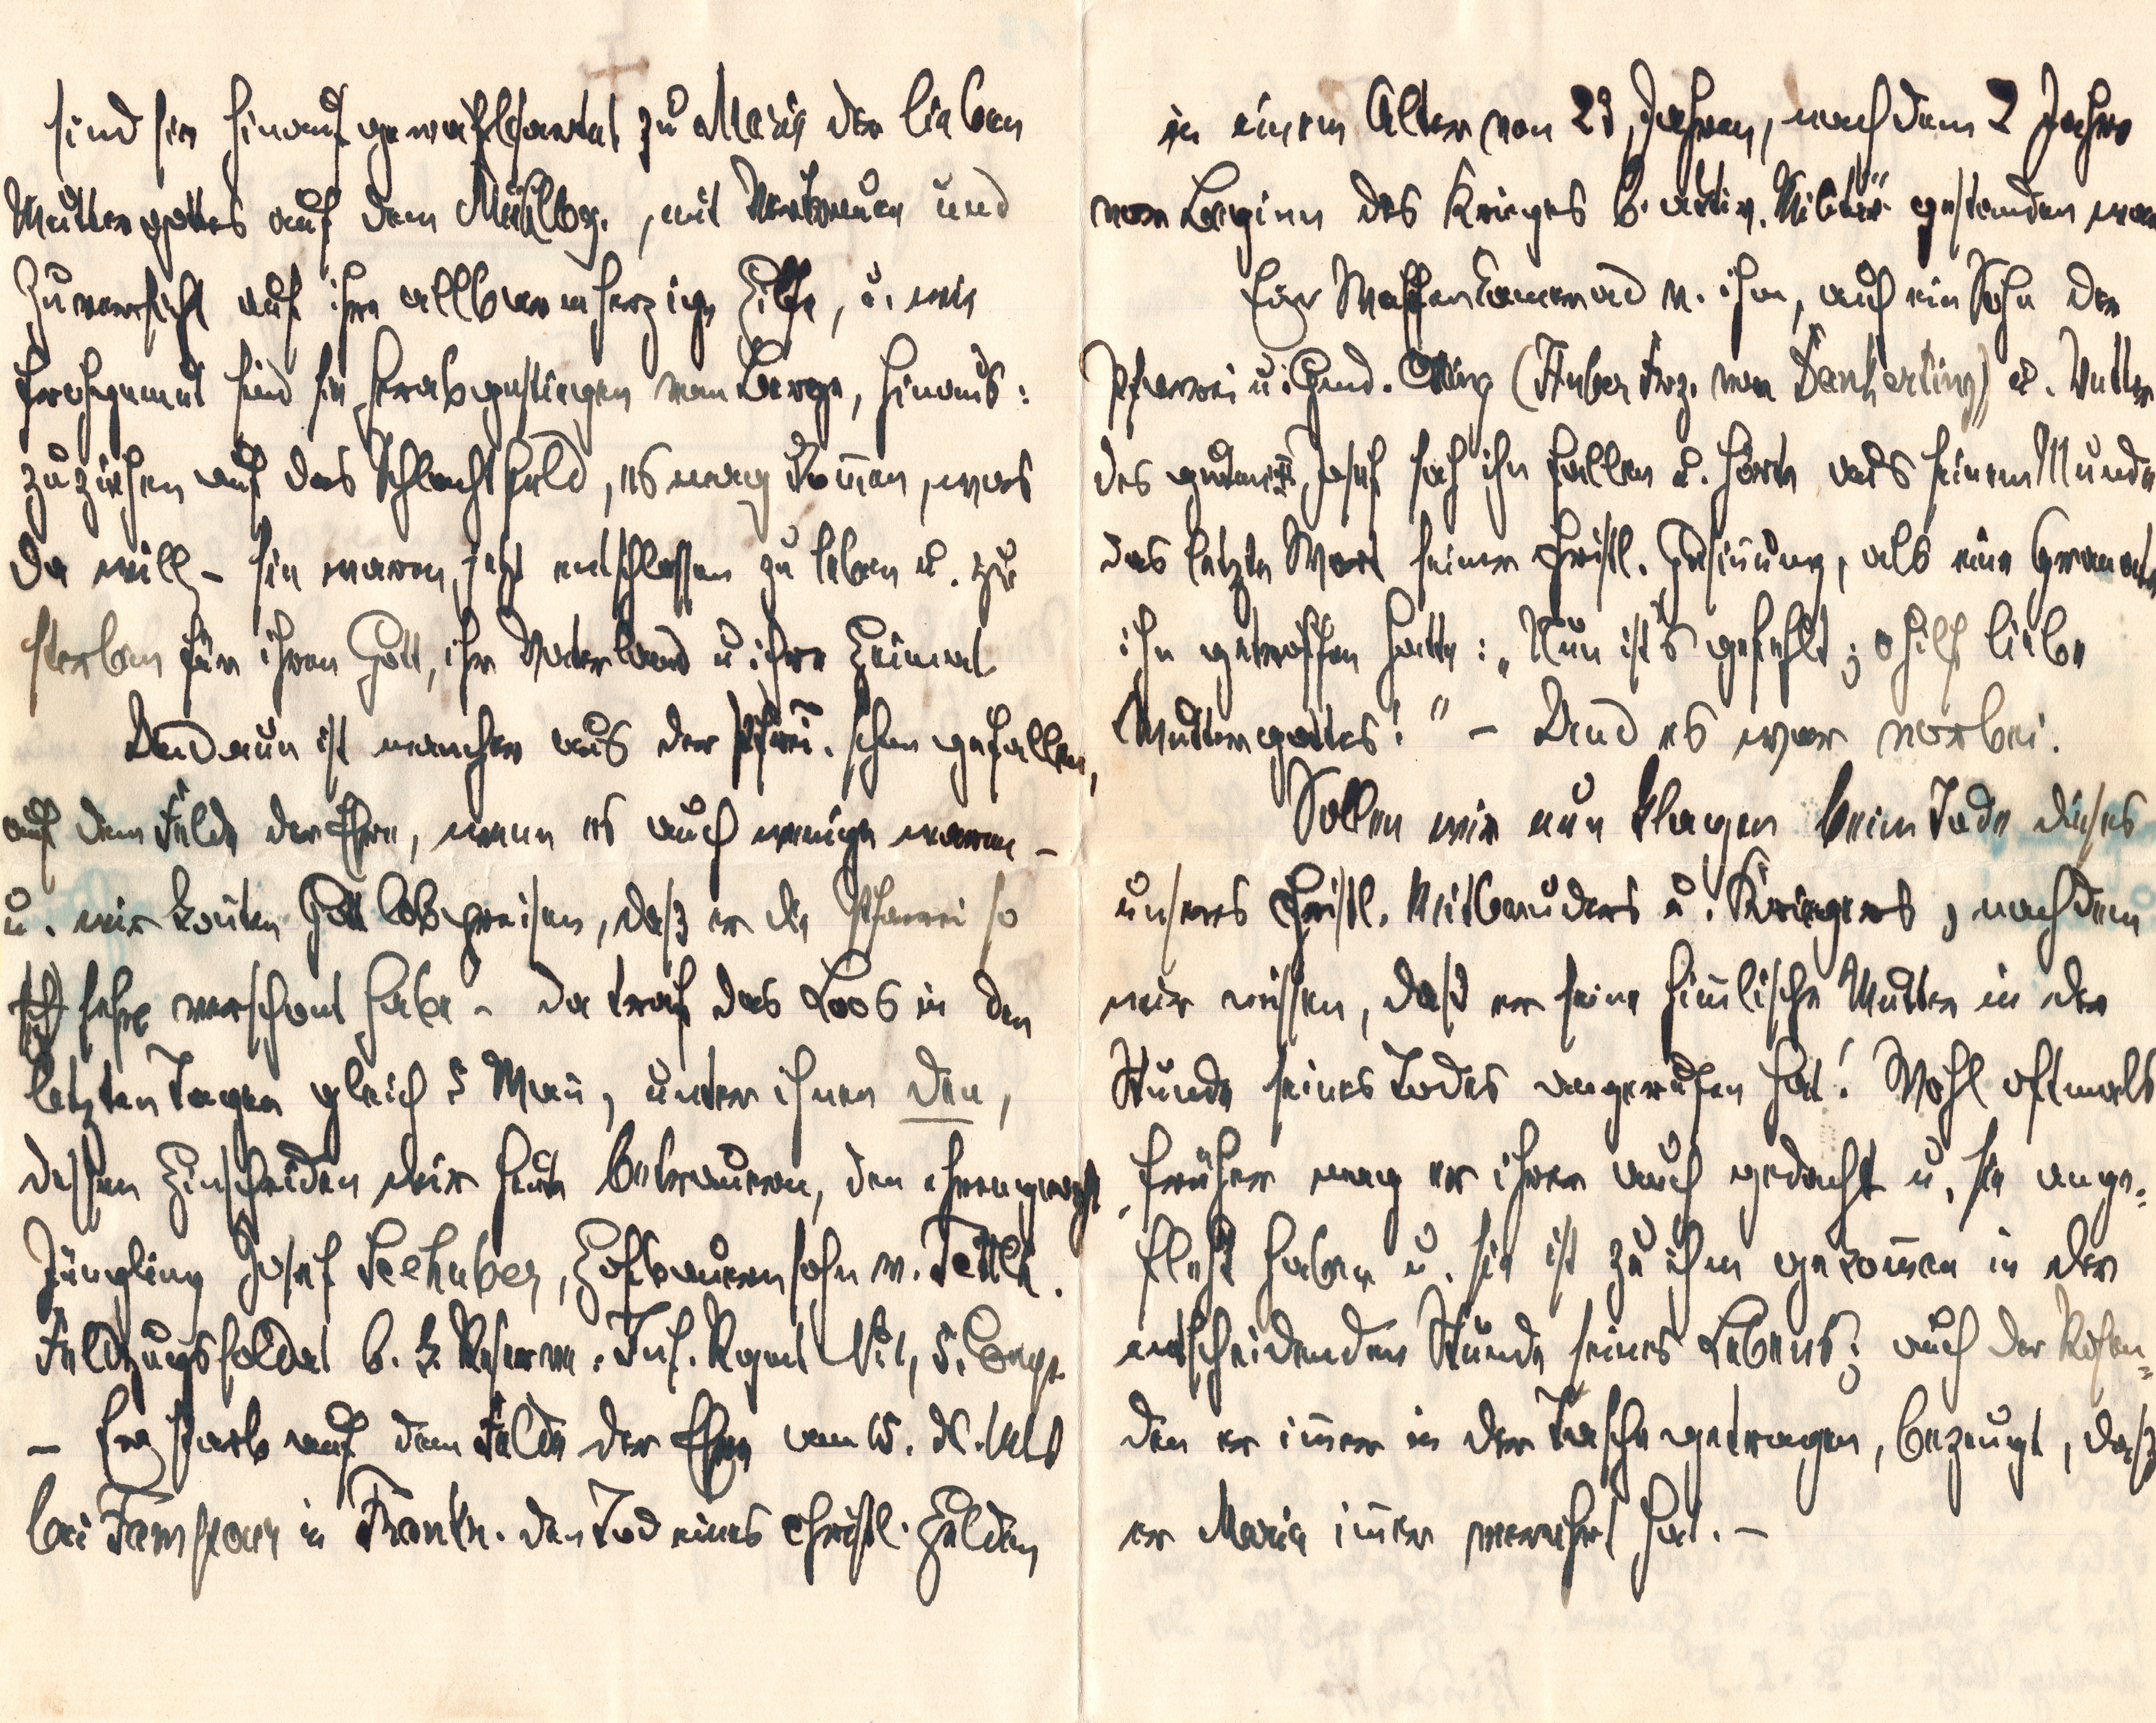 sind sie hinauf gewallfahrtet zu Maria der lieben
Muttergottes auf dem Mühlbg., mit Vertrauen und
Zuversicht auf ihre allbarmherzige Hilfe, u. wie
frohgemut sind sie herabgestiegen vom Berge, hinaus:
zuziehen auf das Schlachtfeld, es mag kom̄en, was
da will – sie waren jetzt entschlossen zu leben u. zu
sterben für ihren Gott, ihr Vaterland u ihre Heimat
Und nun ist mancher aus der Pfrei. schon gefallen,
auf dem Felde der Ehre, wenn es auch wenige waren –
u. wir kon̄ten Gott lobpreisen, daß er die Pfarrei so
sehr verschont habe – da traf das Loos in den
letzten Tagen gleich 5 Man̄, unter ihnen den,
dessen Hinscheiden wir heute betrauern, den ehrengeacht.
Jüngling Josef Seehuber, Hofbauernsohn v. Tettlh.
Feldzugssoldat b. b. Reserve. Inf. Rgmt N: 1, 5. Comp.
– Er starb auf dem Felde der Ehre am 15. X. 1915
bei in Frankr. den Tod eines christl. Helden
in einem Alter von 23 Jahren, nachdem 2 Jahre
vor Beginn des Krieges b. aktiv. Militär gestanden war
Ein Waffenkamerad v. ihm, auch ein Sohn der
Pfarrei u. Gmd. Otting (Huber Frz. von Dankerting) u. Vetter
des guten Josef sah ihn fallen u. hörte aus seinem Munde
das letzte Wort seiner christl. Gesin̄ung, als eine Granate
ihn getroffen hatte: „Nun ist's gefehlt; o hilf liebe
Muttergottes!" – Und es war vorbei.
Sollen wir nun klagen beim Tode dieses
unseres christl. Mitbruders u. Kriegers, nachdem
wir wissen, daß er seine him̄lische Mutter in der
Stunde seines Todes angerufen hat! Wohl oftmals
früher mag er ihrer auch gedacht u. sie ange=
fleht haben u. sie ist zu ihm gekom̄en in der
entscheidenden Stunde seines Lebens; auch der Rosen=
den er im̄er in der Tasche getragen, bezeugt, daß
er Maria im̄er verehrt hat. –